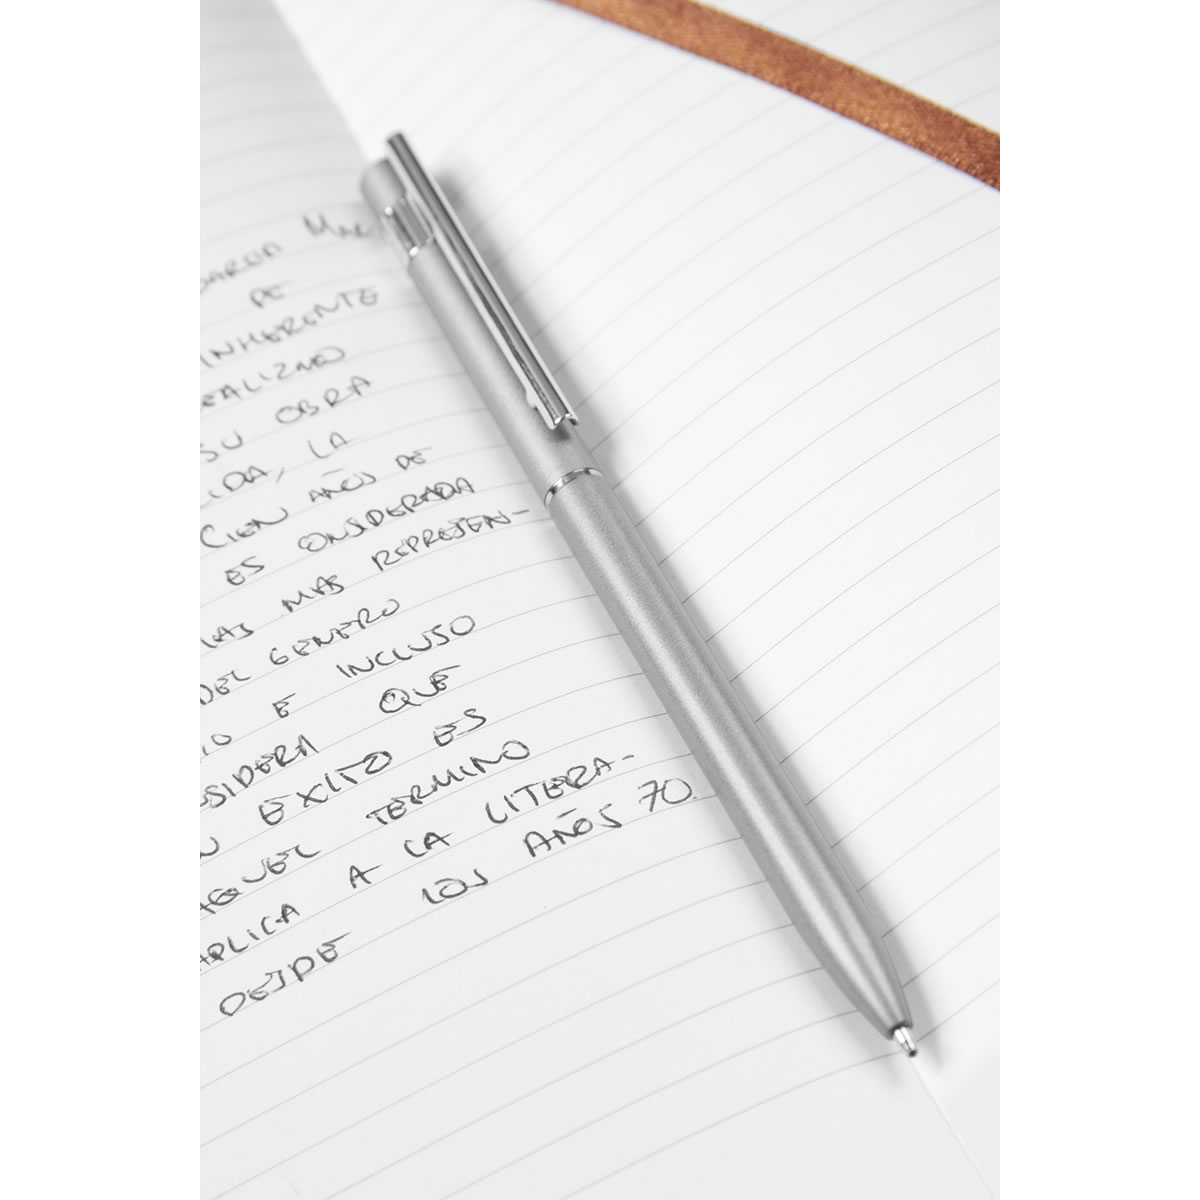 DARON MAC
DE
INHERENTE
EALIZMO
SU OBRA
LIDA, LA
CIEN AÑOS DE
ES ONSIDERADA
LAS MAS REPRESEN-
DEL GENERO
IO E INCLUSO
SIDERA QUE
N EXITO ES
AQUEL TERMINO
APLICA A LA LITERA-
DESDE LOS AÑOS 70.